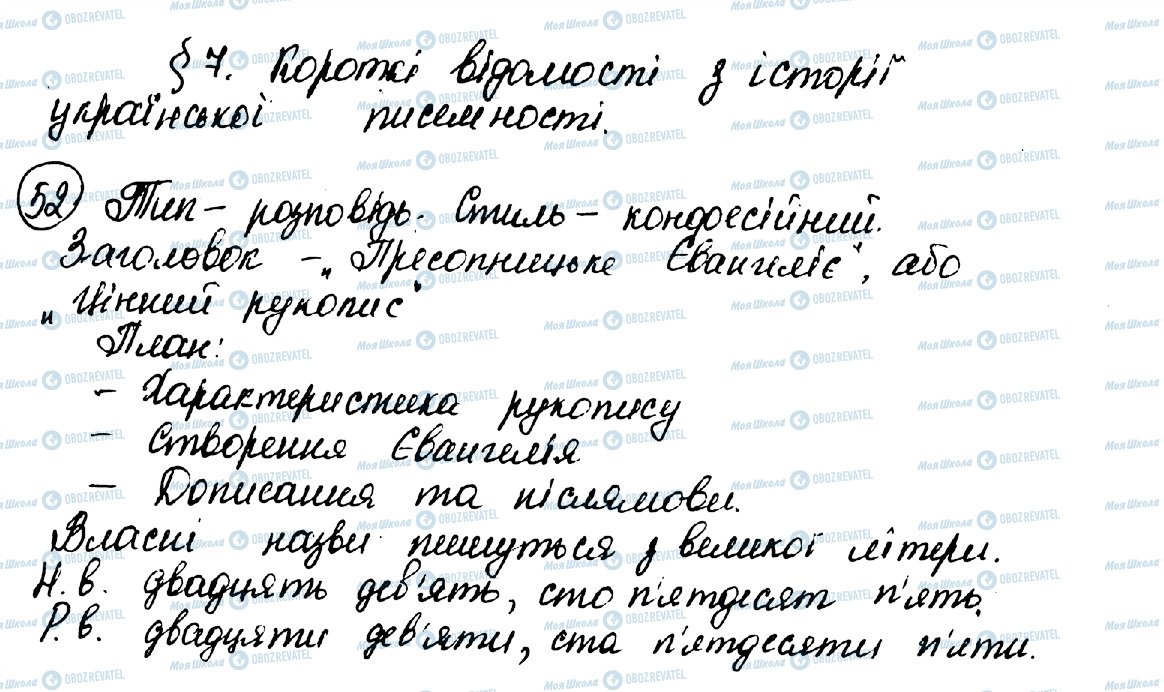 § 7. Короткі відомості з історії
української писемності.
52 Тип – розповідь. Стиль – конфесійний.
Заголовок – „Пресопницьке Євангеліє", або
„Цінний рукопис"
План:
– Характеристика рукопису
– Створення Євангелія
– Дописання та післямови.
Власні назви пишуться з великої літери.
Н.в. двадцять дев'ять, сто п'ятдесят п'ять.
Р.в. двадцяти дев'яти, ста п'ятдесяти п'яти.